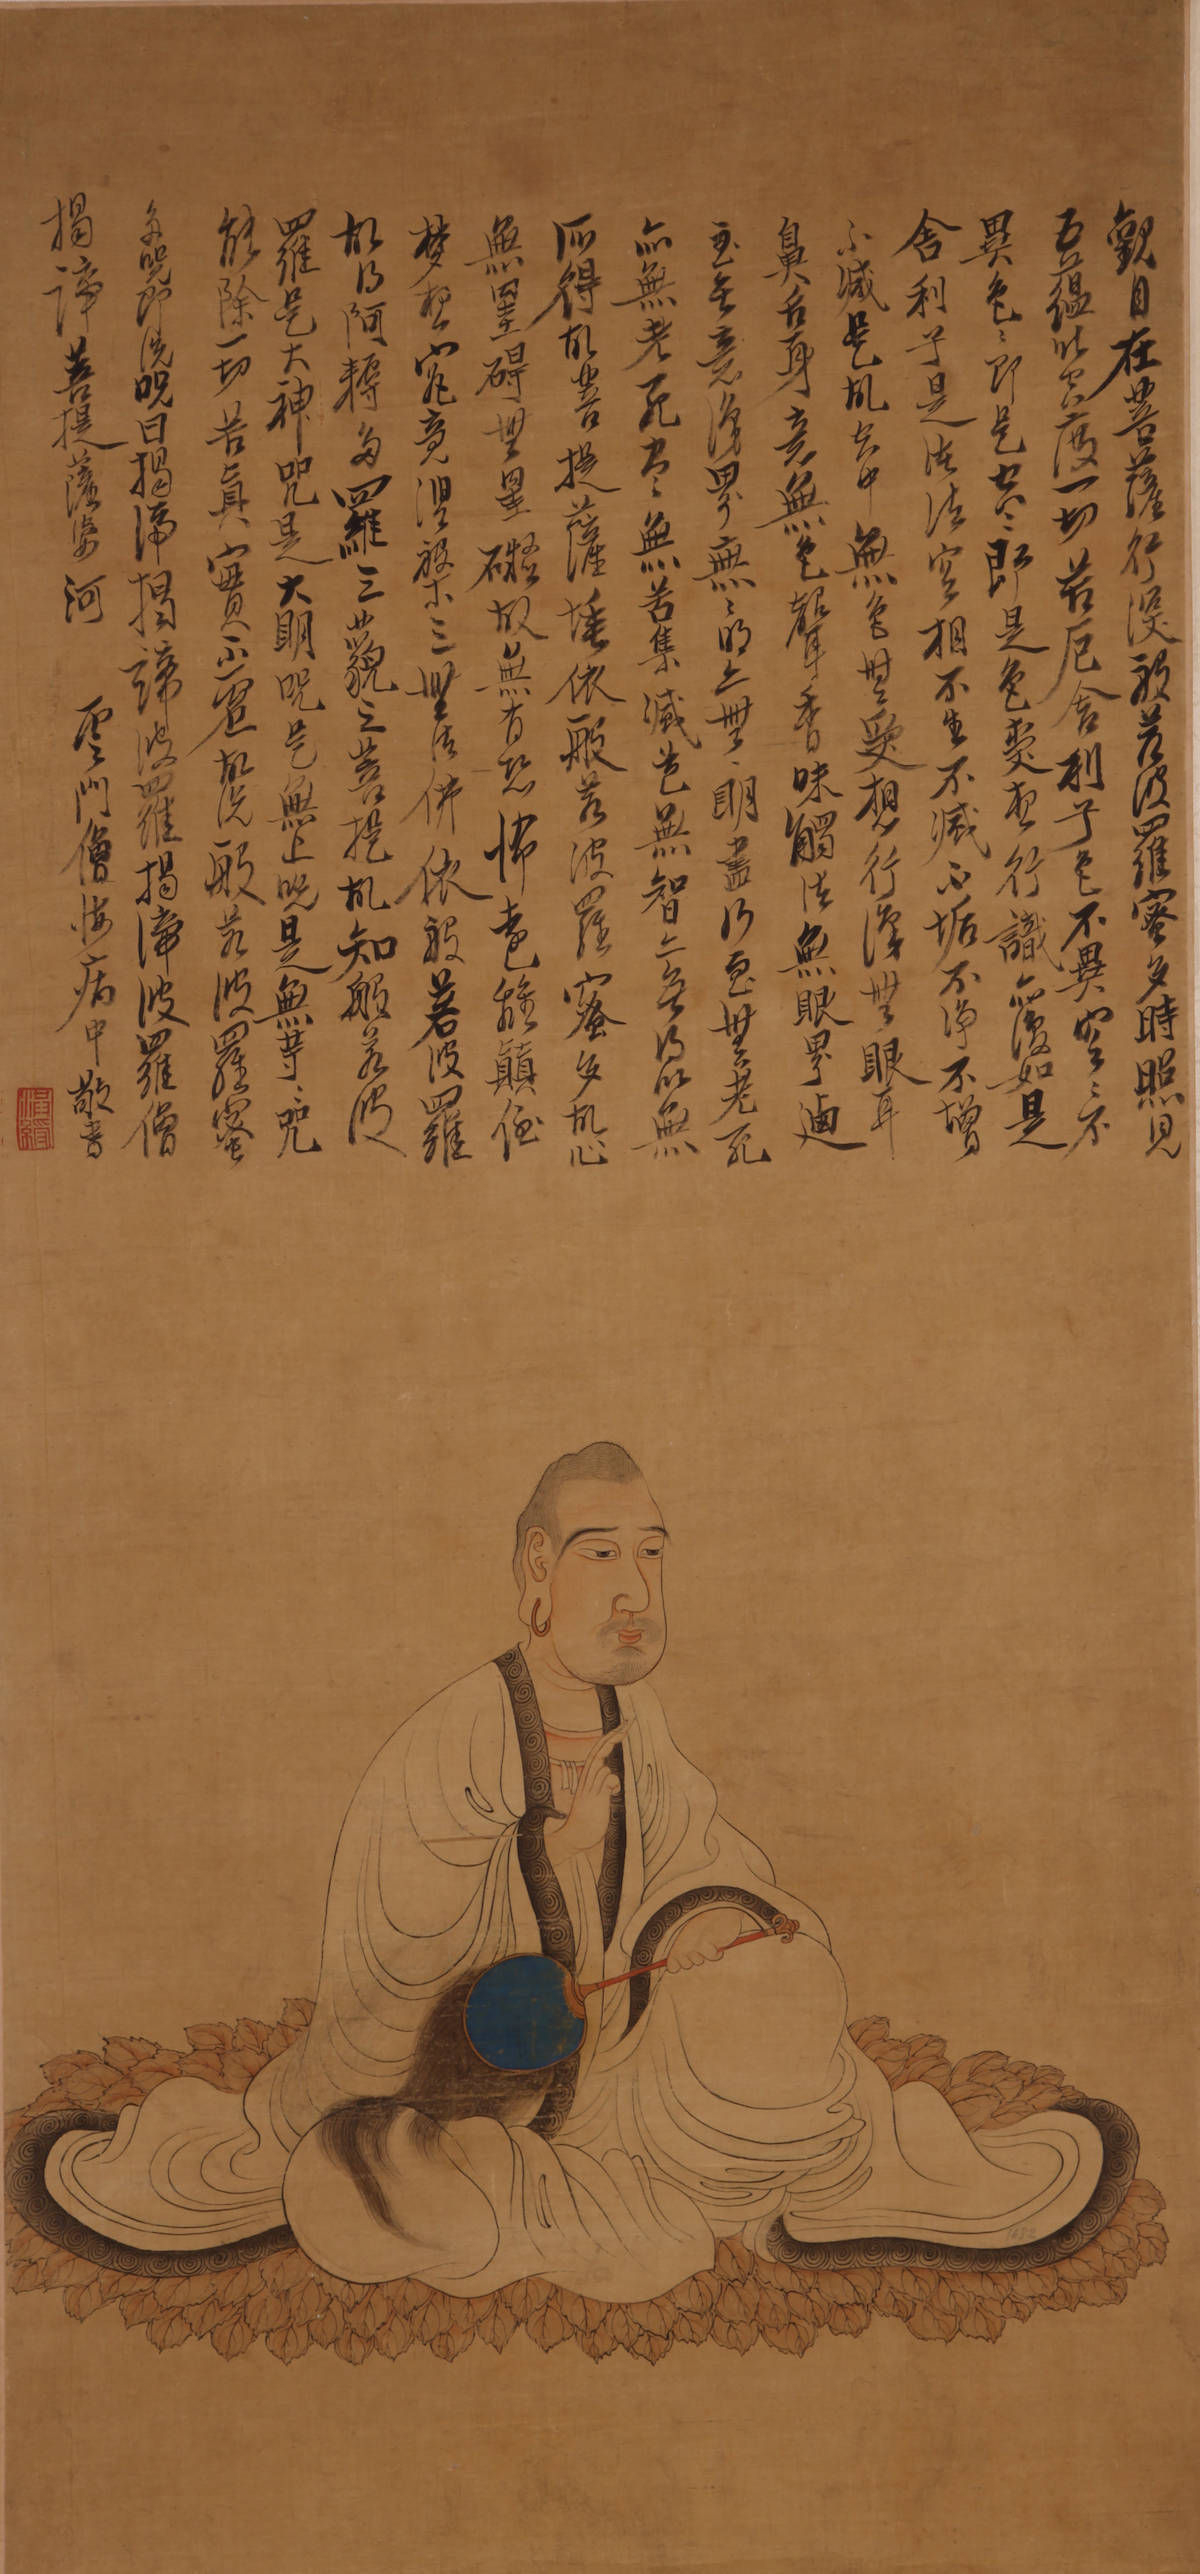 觀自在菩薩行深般若波羅蜜多時照見
五蘊皆空度一切苦厄舍利子色不異空〻不
異色〻即是空〻即是色受想行識亦復如是
舍利子是諸法空相不生不滅不垢不淨不增
不減是故空中無色無受想行識無眼耳
鼻舌身意無色聲香味觸法無眼界迺
至無意識界無〻明亦無〻明盡乃至無老死
亦無老死盡〻無苦集滅道無智亦無得以無
所得故菩提薩埵依般若波羅蜜多故心
無罣礙無罣礙故無有恐怖遠離顛倒
夢想究竟涅槃三世諸佛依般若波羅
故得阿耨多羅三藐三菩提故知般若波
羅是大神咒是大明咒是無上咒是無等〻咒
能除一切苦真實不虛故說般若波羅蜜
多咒即說咒曰揭諦揭諦波羅揭諦波羅僧
揭諦菩提薩婆河 雲門僧 病中敬書